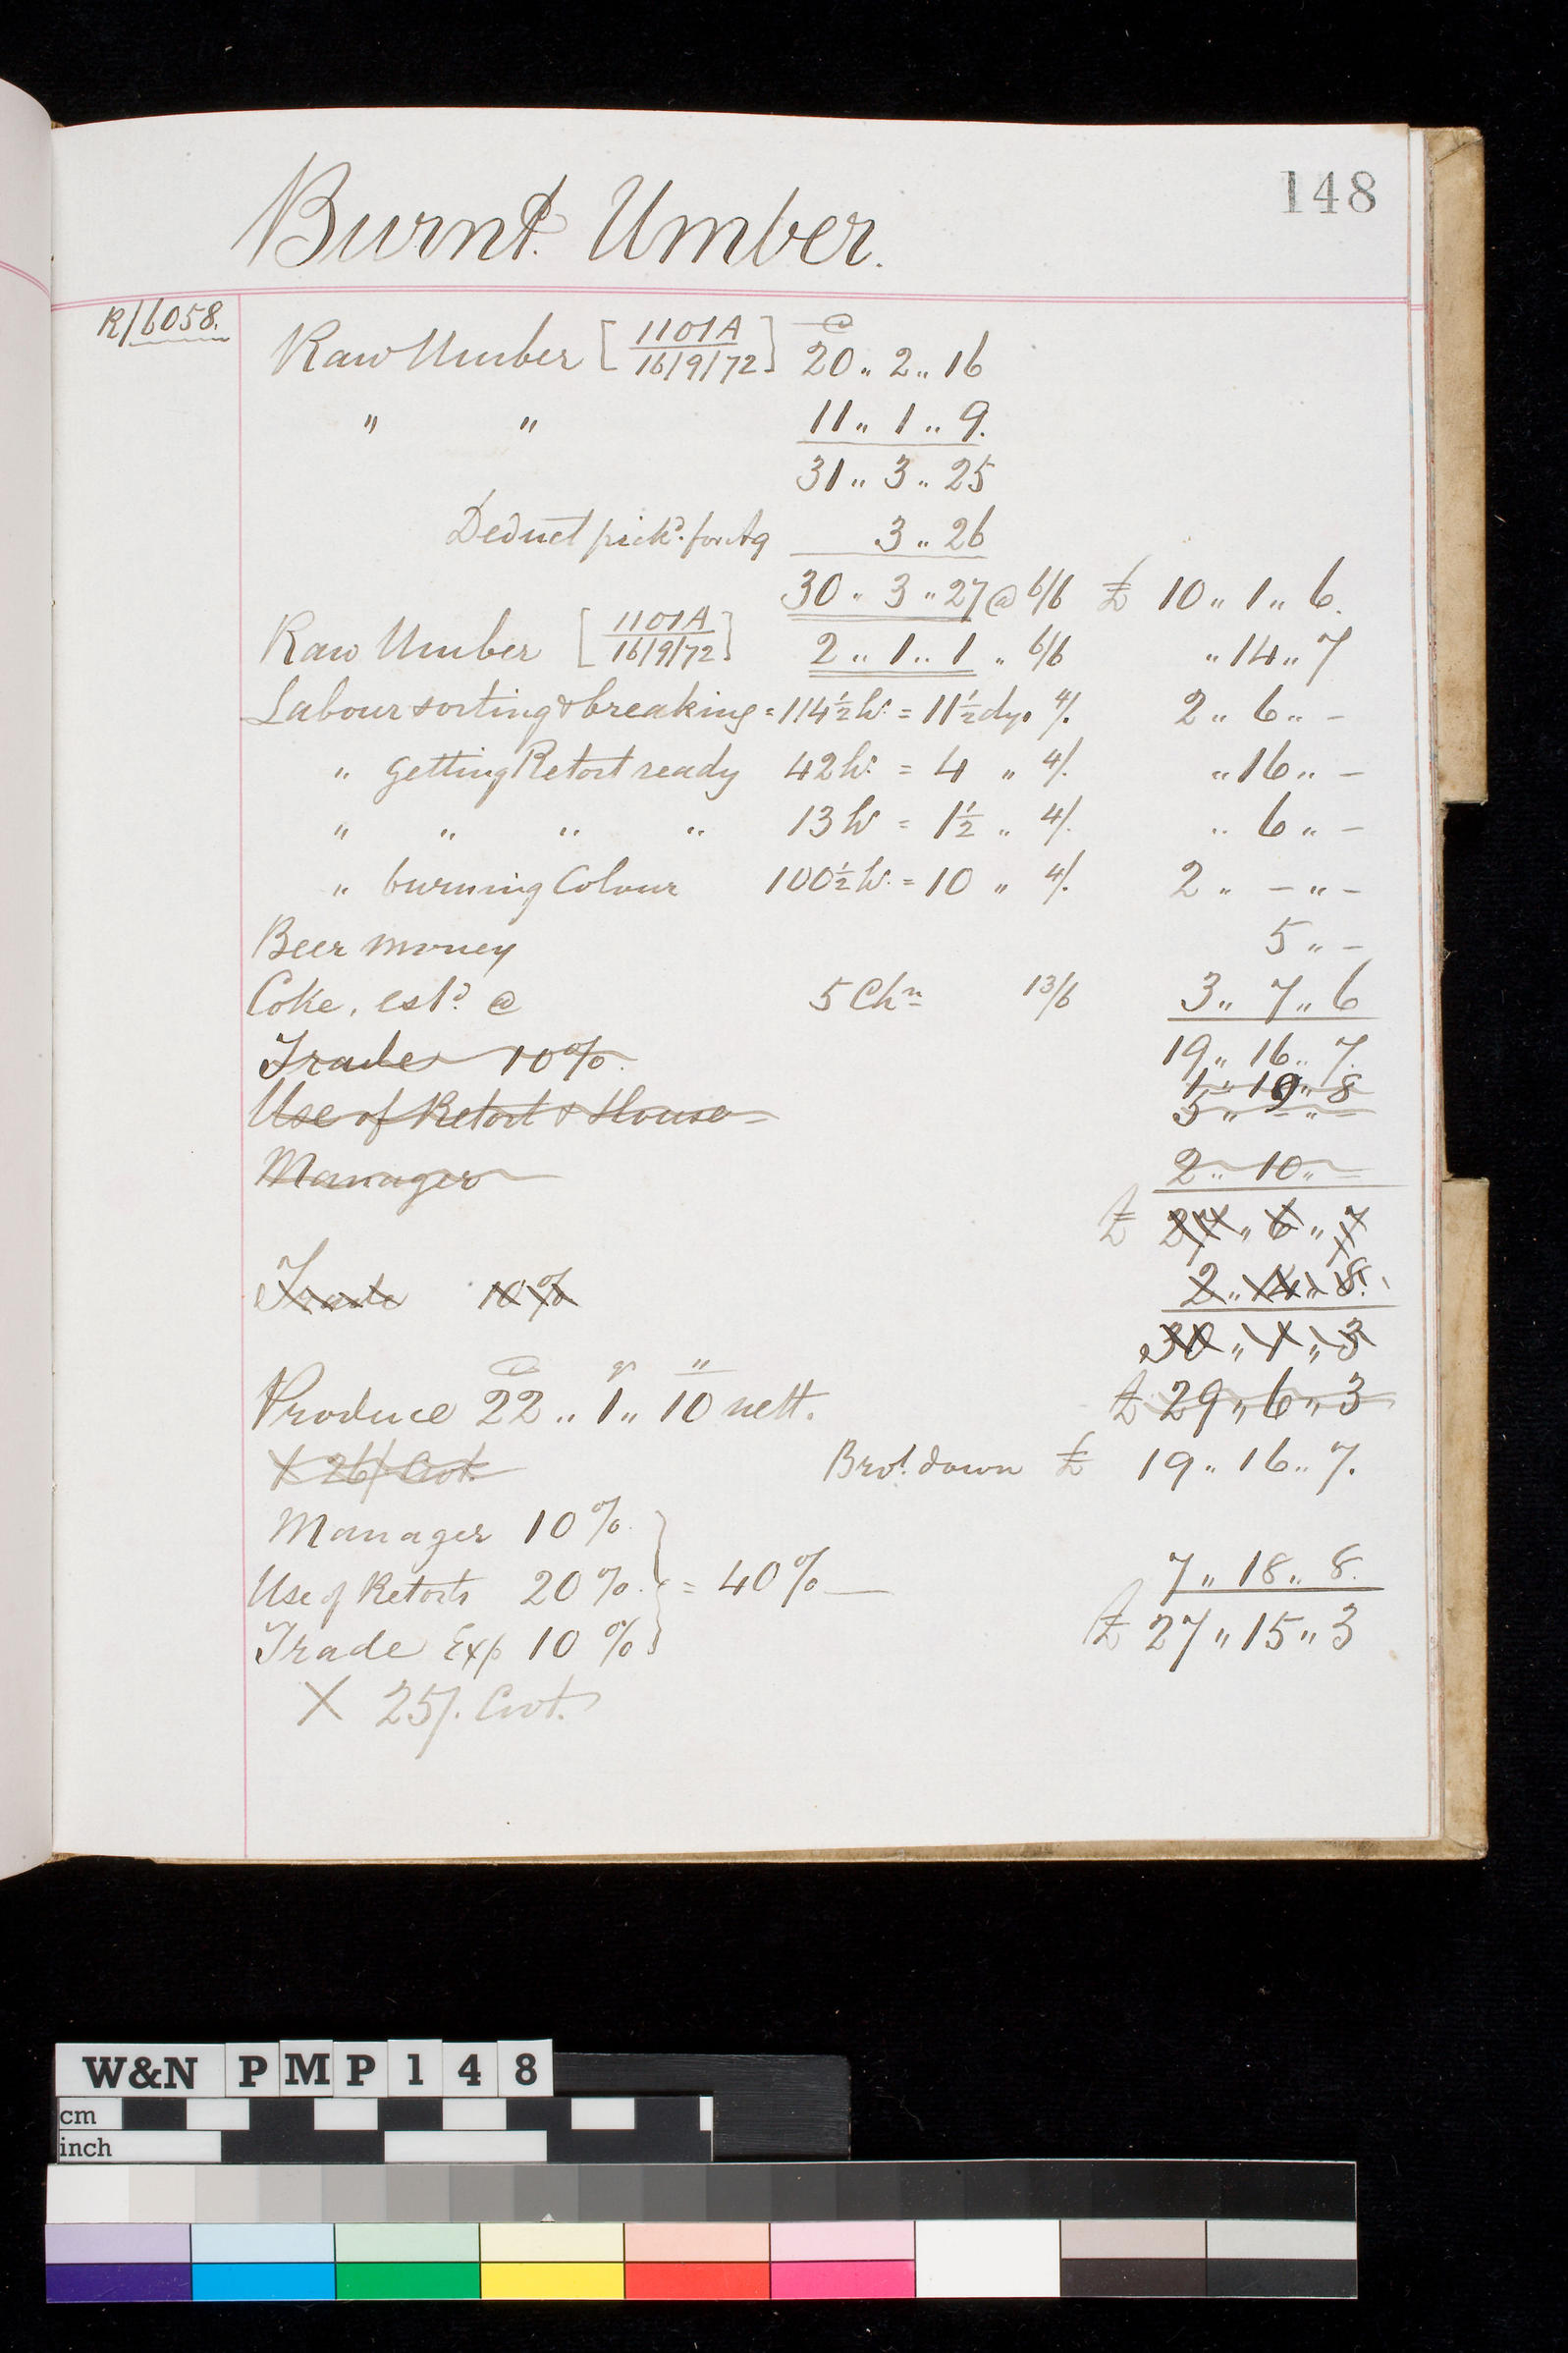 148
Burnt Umber.
R/6058.
Raw Umber [1101A 16/9/72] C 20 „ 2 „ 16
„ „ 11 „ 1 „ 9.
31 „ 3 „ 25
Deduct pickd. for Ag 3 „ 26
30 „ 3 „ 27 @ 6/6 £ 10 „ 1 „ 6.
Raw Umber [1101A 16/9/72] 2 „ 1 „ 1 „ 6/6 „ 14 „ 7
Labour sorting & breaking = 114½ h. = 11½ dys 4/. 2 „ 6 „ -
„ getting Retort ready 42 h. = 4 „ 4/. „ 16 „ -
„ „ „ „ 13 h = 1½ „ 4/. „ 6 „ -
„ burning Colour 100½ h. = 10 „ 4/. 2 „ - „ -
Beer money 5 „ -
Coke, estd. @ 5 Chn 13/6 3 „ 7 „ 6
Trade 10%. 19 „ 16 „ 7.
1 „ 19 „ 8
Use of Retort & House 5 „ - „ -
Manager 2 „ 10 „ -
£ 27 „ 6 „ 7
Trade 10% 2 „ 14 „ 8.
30 „ 1 „ 3
C qr „
Produce 22 „ 1 „ 10 nett. £ 29 „ 6 „ 3
X 26/ Cwt. Brot. down £ 19 „ 16 „ 7.
Manager 10%.
Use of Retorts 20%. } = 40% — 7 „ 18 „ 8.
Trade Exp 10% £ 27 „ 15 „ 3
X 25/. Cwt.
W&N PMP148
cm
inch